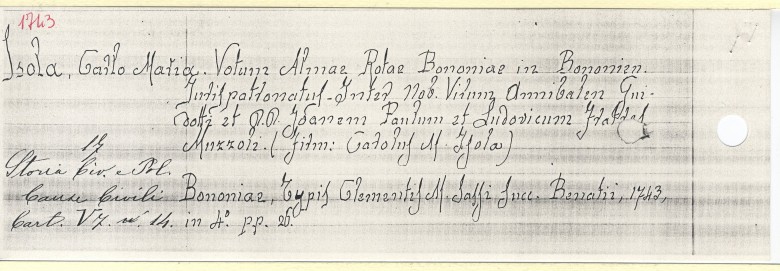 1743
Isola, Carlo Maria. Votum Almae Rotae Bononiae in Bononien.
Jurispatronatus - Inter Nob. Virum Annibalem Gui-
dotti et R.R. Joanem Paulum et Ludovicum Fratres
Muzzoli. (Firm: Carolus M. Isola)
17
Storia Civ. e Pol.
Cause Civili Bononiae, Typis Clementis M. Sassi Succ. Benatii, 1743,
Cart. V7. nº. 14. in 4º. pp. 26.